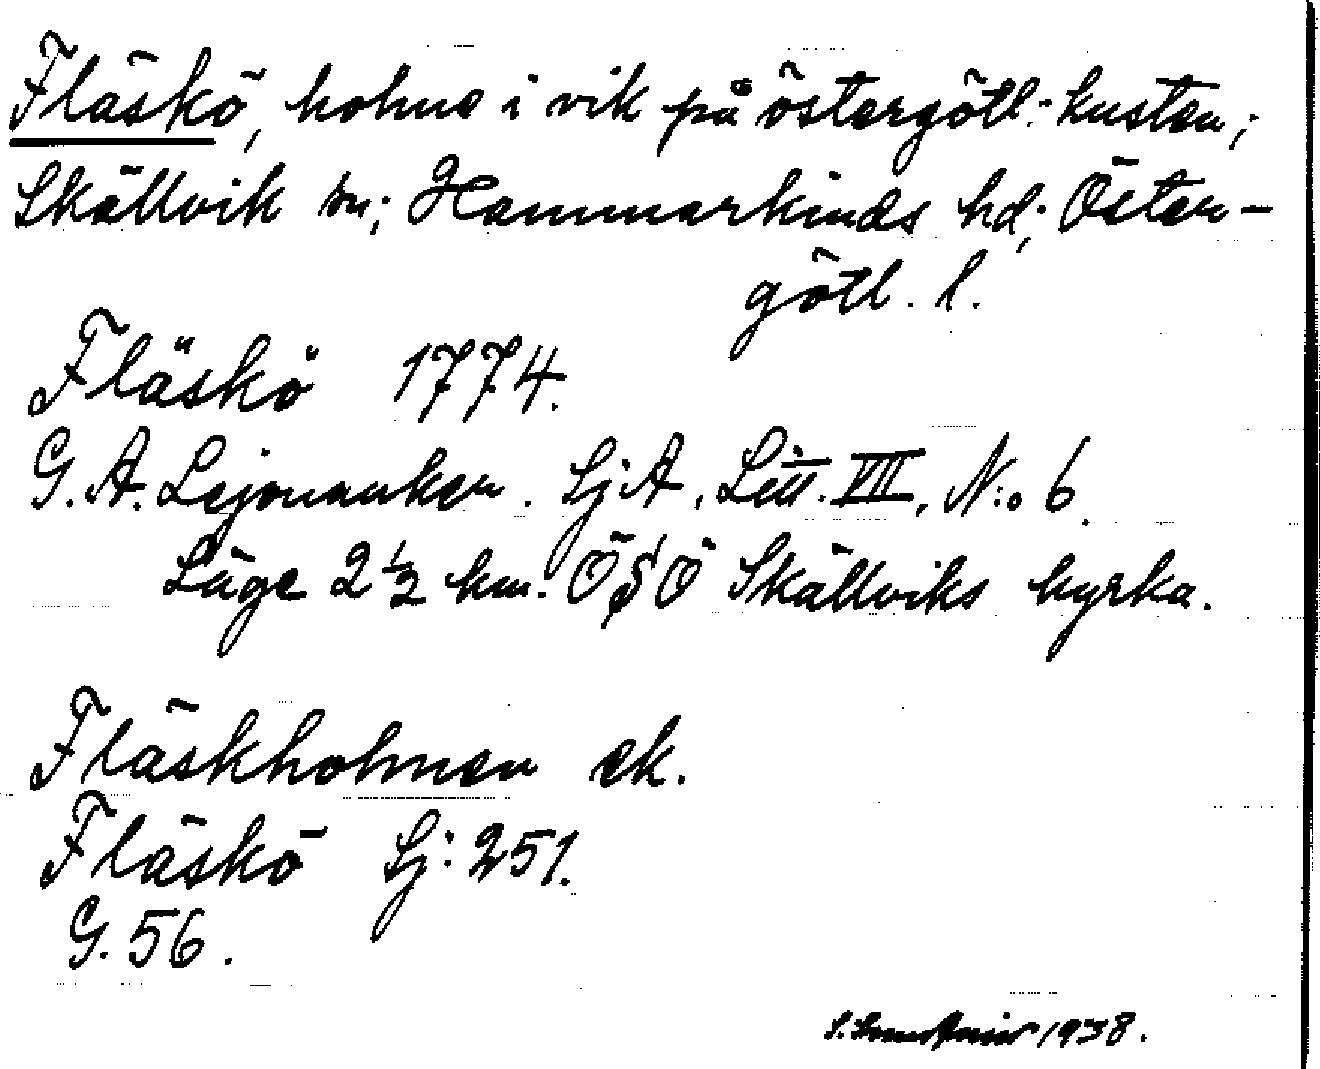 Fläskö, holme i vik på östergötl. kusten;
Skällvik sn; Hammarkinds hd; Öster-
götl. l.
Fläskö 1774.
G. A. Lejonanker. SjA, Litt. VIII, N:o 6.
Läge 2 1/2 km. ÖSÖ Skällviks kyrka.
Fläskholmen ek.
Fläskö Sj: 251.
G. 56.
1938.